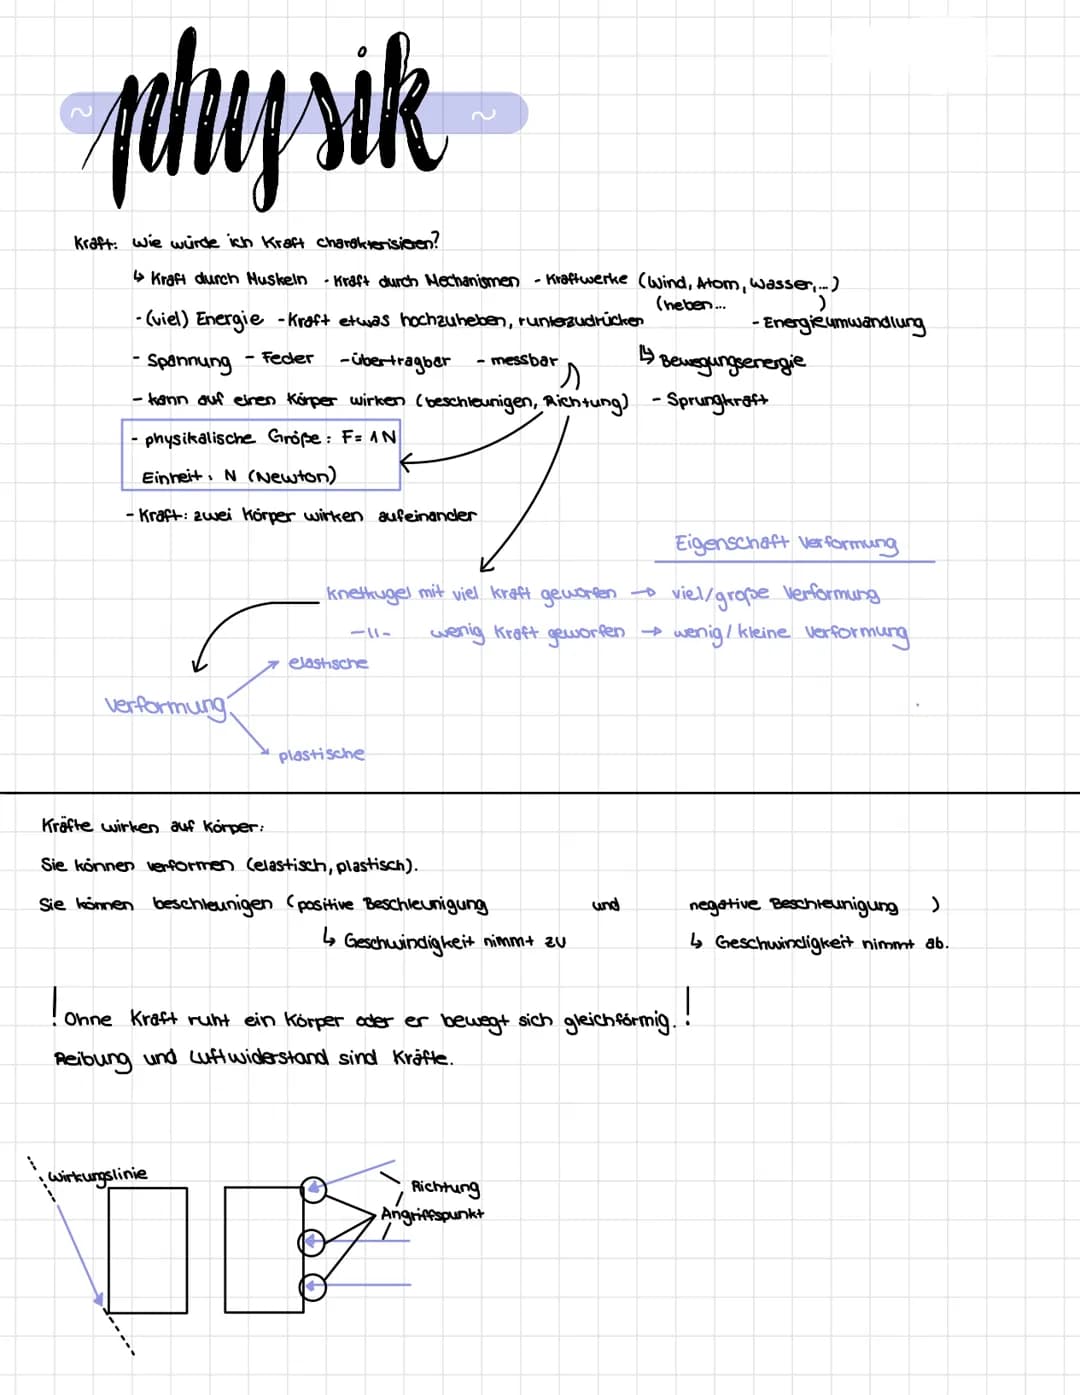 ~ physik ~
Kraft: Wie würde ich Kraft charakterisieren?
↳ Kraft durch Muskeln - Kraft durch Mechanismen - Kraftwerke (Wind, Atom, Wasser,...)
- (viel) Energie - Kraft etwas hochzuheben, runterzudrücken (heben... )
- Energieumwandlung
- Spannung - Feder - übertragbar - messbar ↳ Bewegungsenergie
- kann auf einen Körper wirken (beschleunigen, Richtung) - Sprungkraft
- physikalische Größe: F= 1N
Einheit: N (Newton)
- Kraft: zwei Körper wirken aufeinander
Eigenschaft Verformung
Knetkugel mit viel Kraft geworfen → viel/große Verformung
-11- wenig Kraft geworfen → wenig/kleine Verformung
elastische
Verformung
plastische
Kräfte wirken auf Körper:
Sie können verformen (elastisch, plastisch).
Sie können beschleunigen (positive Beschleunigung und negative Beschleunigung )
↳ Geschwindigkeit nimmt zu ↳ Geschwindigkeit nimmt ab.
! Ohne Kraft ruht ein Körper oder er bewegt sich gleichförmig. !
Reibung und Luftwiderstand sind Kräfte.
Wirkungslinie
Richtung
Angriffspunkt